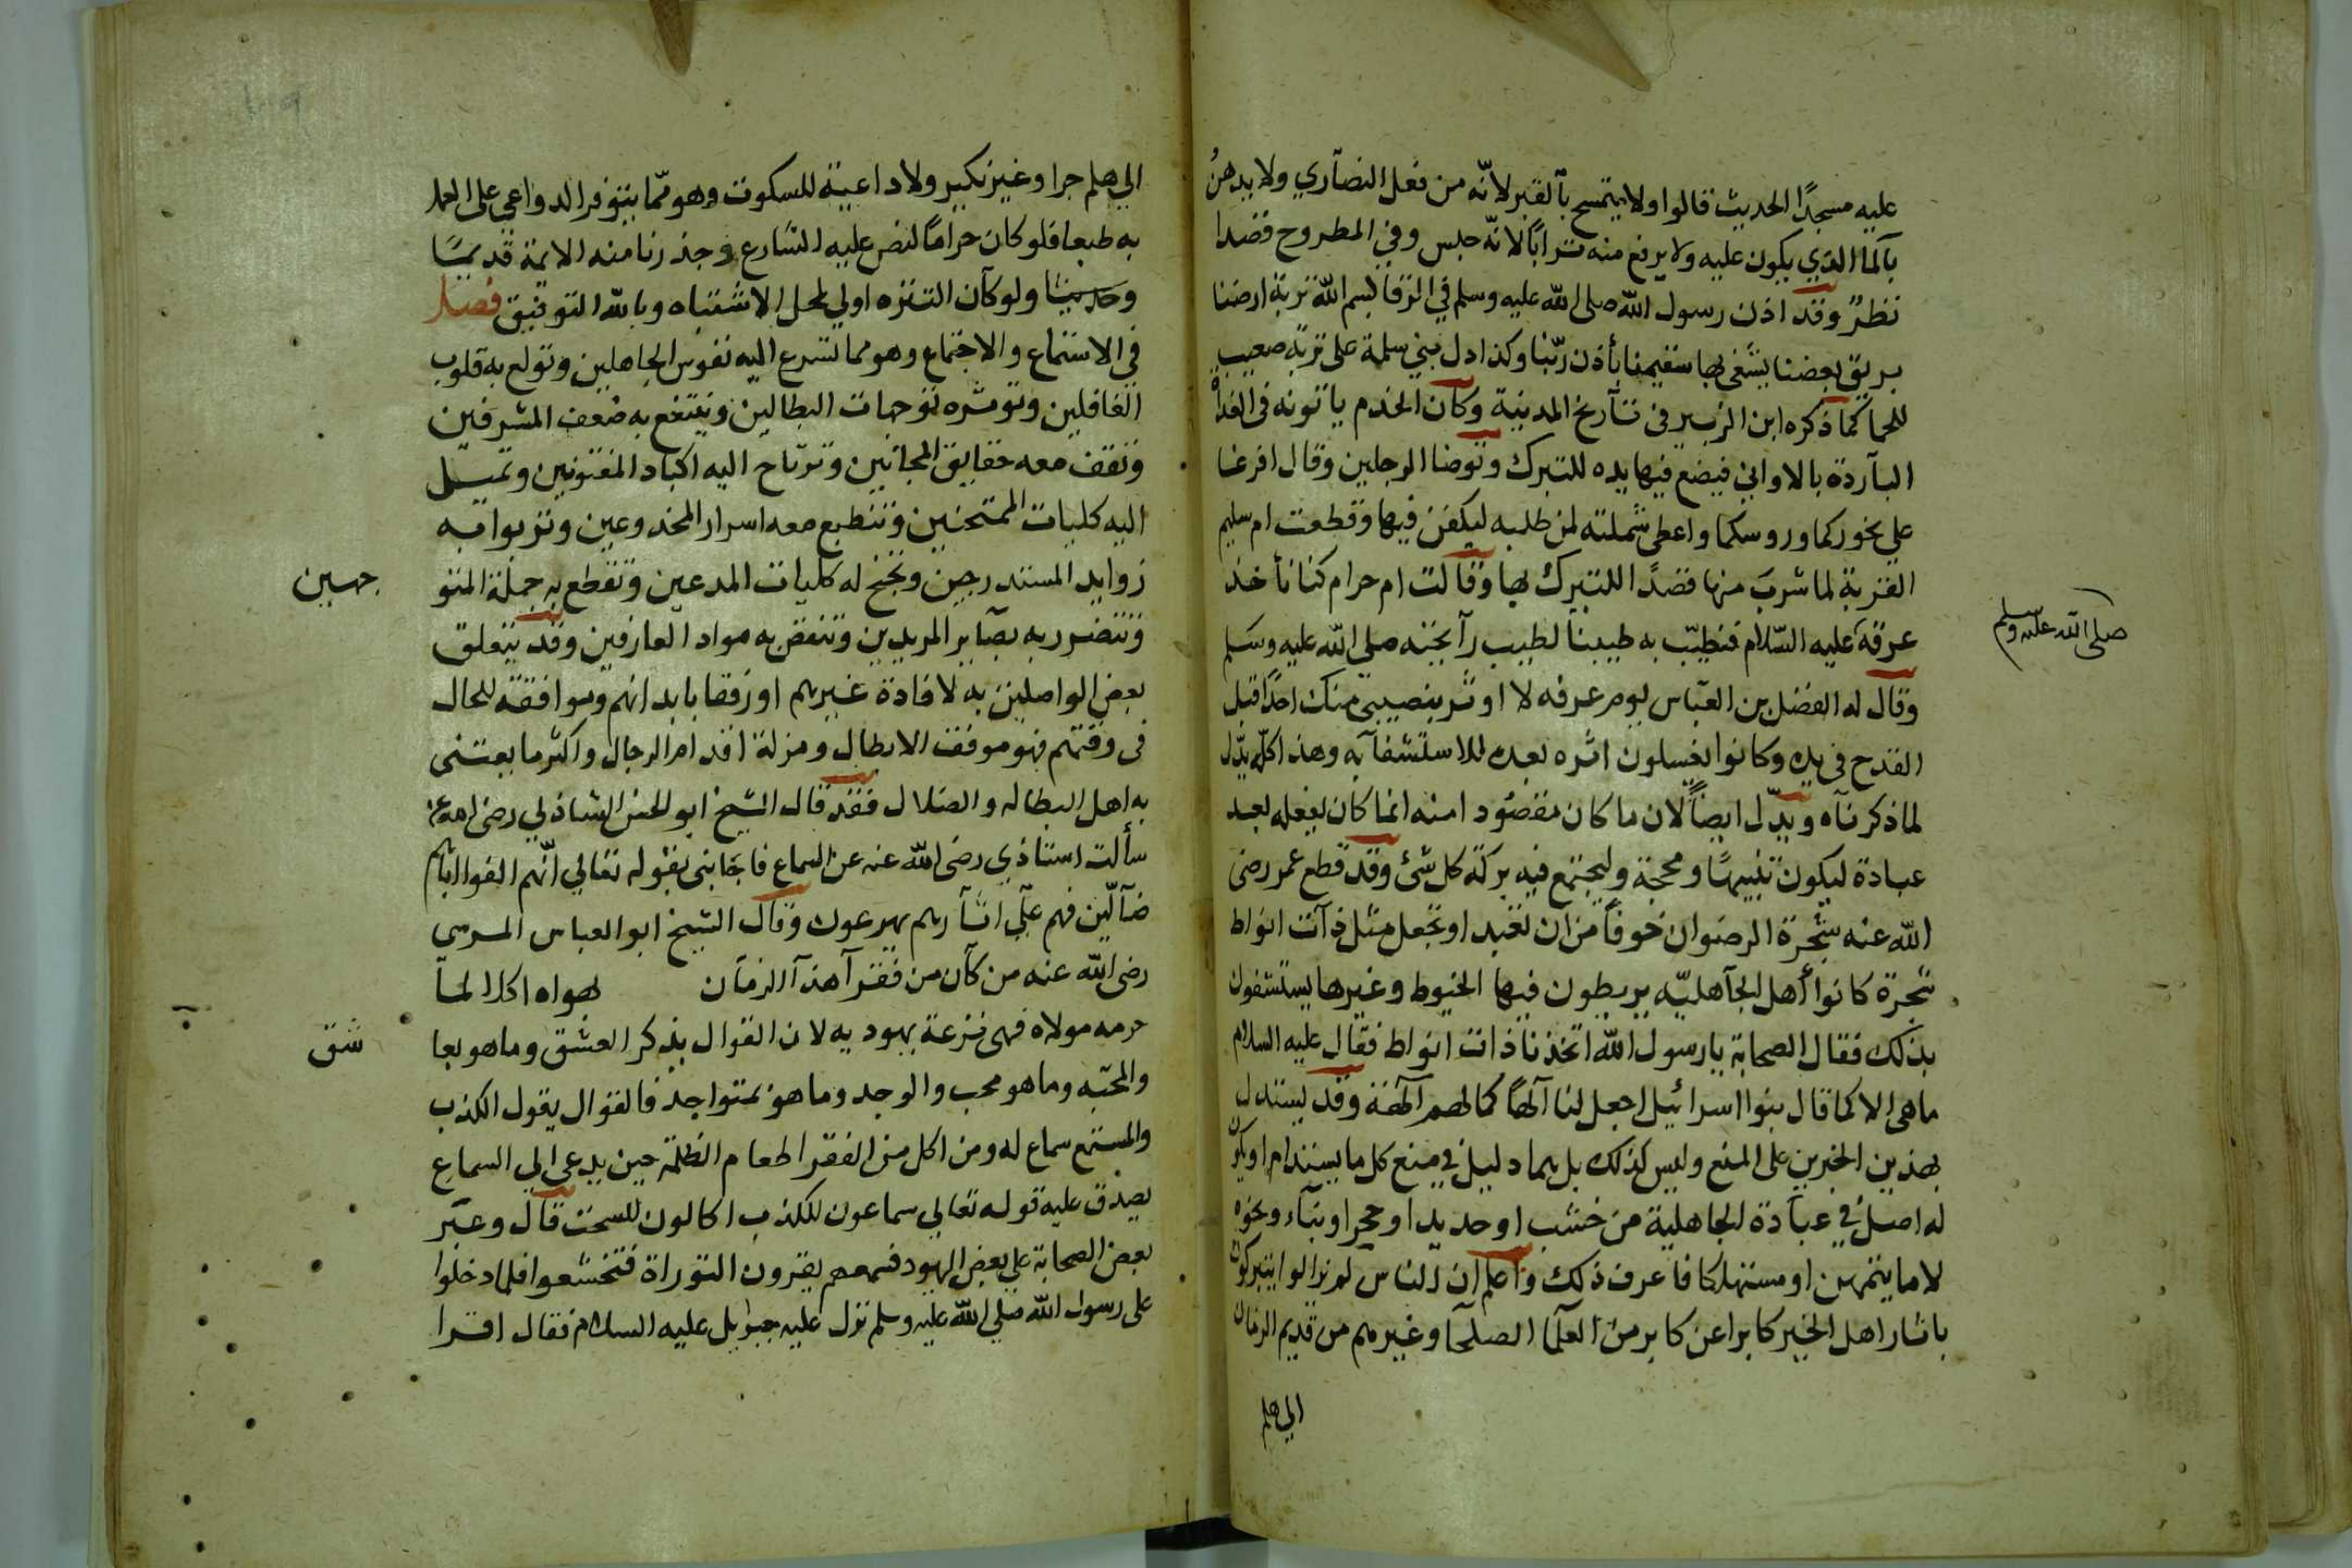 عليه مسجدًا الحديث قالوا ولا يتمسح بالقبر لانّه من فعل النصآري ولا يدهنُ
بآلما الذي يكون عليه ولا يرفع منه ترابًا لانّه حبس وفي المطروح قصدا
نظرٌ وقد اذن رسول الله صلى الله عليه وسلم في الرقا بسم الله تربة ارضنا
بريق بعضنا يشفى بها سقيمنا بأذن ربّنا وكذا دل بني سلمة على تربة صعيب
للحما كما ذكره ابن الزبير في تاريخ المدينة وكان الخدم ياتونه في الغداة
البآردة بالاواني فيضع فيها يده للتبرك وتوضا الرجلين وقال افرغا
على نحوركما وروسكما واعطى شملته لمن طلبه ليكفن فيها وقطعت ام سليم
القربة لما شرب منها قصدًا للتبرك بها وقالت ام حرام كنا نأخذ
عرقه عليه السّلام فنطيّب به طيبنا لطيب رآئحته صلى الله عليه وسلم
صلى الله عليه وسلم
وقال له الفضل بن العبّاس يوم عرفه لا اوثر بنصيبي منك احدًا قبل
القدح في يده وكانوا يغسلون اثره بعده للاستشفآ به وهذا كلّه يدّل
لما ذكرنآه ويدّل ايضاً لان ما كان مقصودا منه انما كان يفعله بعد
عبادة ليكون تنبيهًا ومحجة وليجتمع فيه بركة كل شئ وقد قطع عمر رضى
الله عنه شجرة الرضوان خوفاً من ان تعبد او تجعل مثل ذآت انواط
شجرة كانوا أهل الجآهليّه يربطون فيها الخيوط وغيرها يستشفون
بذلك فقال الصحابة يا رسول الله اتخذ نا ذات انواط فقال عليه السلام
ما هى الا كما قال بنوا اسرائيل اجعل لنا آلهاً كما لهم آلهة وقد يستدل
بهذين الخبرين على المنع وليس كذلك بل هما دليل في منع كل ما يستدام او يكون
له اصل في عبآدة الجاهلية من خشب او حديد او حجر او بنآء ونحوه
لا ما يتمهن او مستهلكا فاعرف ذلك واعلم ان الناس لم يزالوا يتبركون
باثار اهل الخير كابرا عن كابر من العلما الصلحآ وغيرهم من قديم الزمان
الى هلم
الى هلم جرا وغير نكير ولا داعية للسكوت وهو ممّا يتوفر الدواعي على العمل
به طبعا فلو كان حرامًا لنص عليه الشارع وحذرنا منه الائمة قديمًا
وحديثا ولو كآن التنزه اولى لمحل الاشتباه وبالله التوفيق فصل
في الاستماع والاجتماع وهو مما تسرع اليه نفوس الجاهلين وتولع به قلوب
الغافلين وتوثره توجهات البطالين وينتفع به ضعف المشرفين
وتقف معه حقايق المجانين وترتاح اليه اكباد المفتونين وتميل
اليه كليات الممتحنين وتنطبع معه اسرار المخدوعين وتربوا به
زوايد المستدرجين وتجنح له كليات المدعين وتقطع به جملة المتو
جهين
وتتضرر به بصآير المريدين وتنقض به مواد العارفين وقد يتعلق
بعض الواصلين به لافادة غيرهم او رفقا بابدانهم وموافقة للحال
في وقتهم فهو موقف الابطال ومزلة اقدام الرجال واكثر ما يعتنى
به اهل البطاله والضلال فقد قال الشيخ ابو الحسن الشاذلي رضى الله عنه
سألت استاذي رضى الله عنه عن السماع فاجابنى بقوله تعالى انّهم الفوا اباهم
ضآلّين فهم علي اثآرهم يهرعون وقال الشيخ ابو العباس المرسى
رضى الله عنه من كآن من فقرآ هذآ الزمان لهواه اكلا لمآ
حرمه مولاه فهى نزعة يهوديه لان القوال يذكر العشق وما هو بعا
شق
والمحبّه وما هو محب والوجد وما هو بمتواجد فالقوال يقول الكذب
والمستمع سماع له ومن اكل من الفقرا طعام الظلمة حين يدعى الى السماع
يصدق عليه قوله تعالي سماعون للكذب اكالون للسحت قآل وعبّر
بعض الصحابة على بعض اليهود فسمعهم يقرون التوراة فتخشعوا فلما دخلوا
على رسول الله صلى الله عليه وسلم نزل عليه جبرايل عليه السلام فقال اقرا